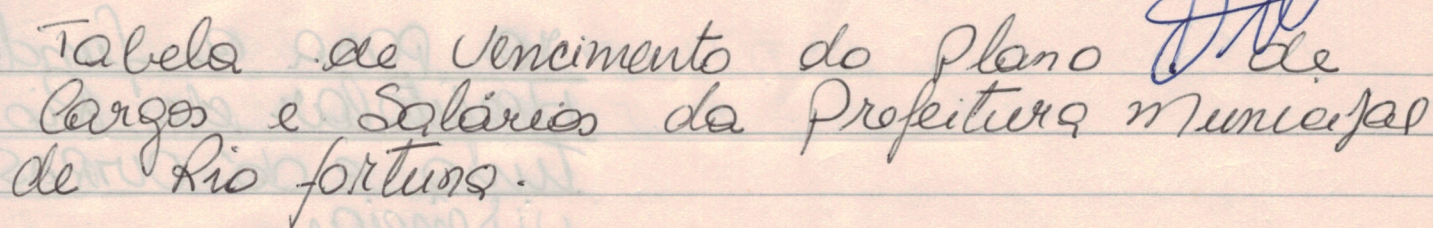 Tabela de Vencimento do Plano de
Cargos e Salários da Prefeitura Municipal
de Rio fortuna.